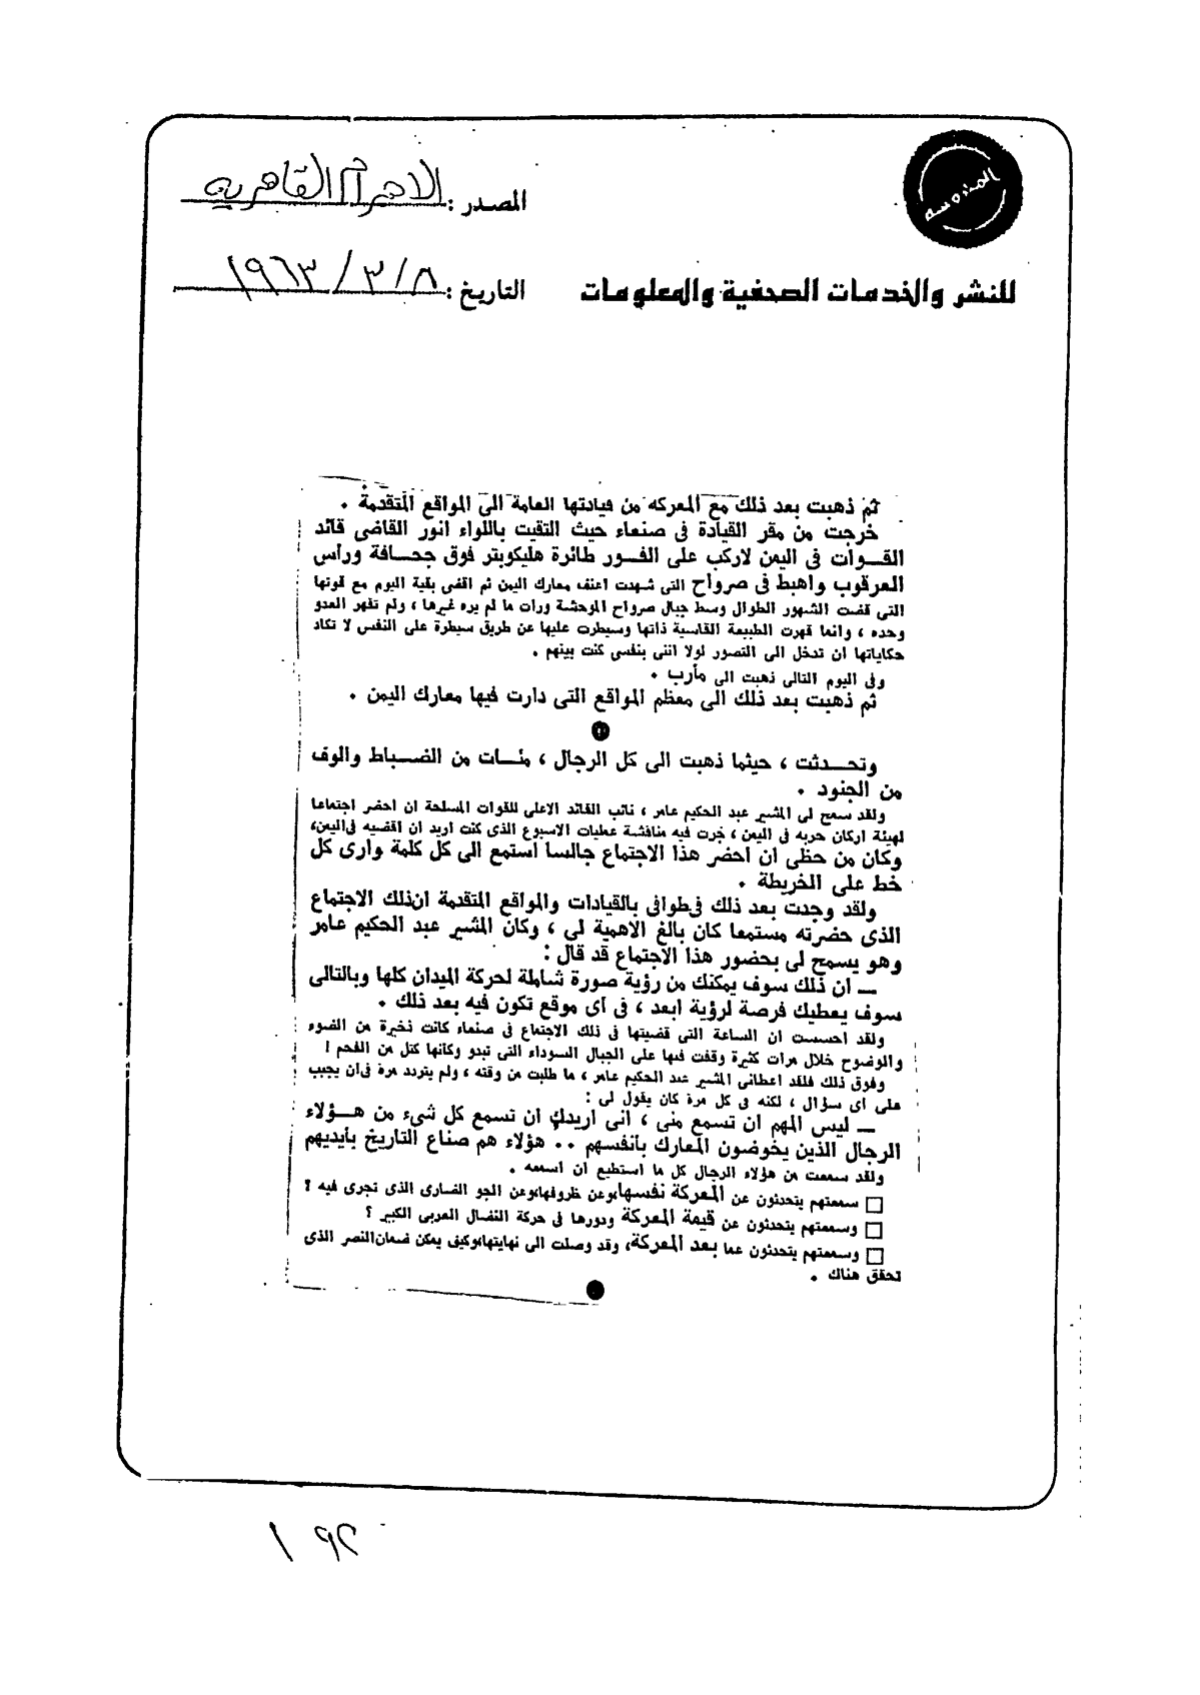 المصدر : الاهرام القاهرية
للنشر والخدمات الصحفية والمعلومات
التاريخ : ٨ / ٣ / ١٩٦٣
ثم ذهبت بعد ذلك مع المعركه من قيادتها العامة الى المواقع المتقدمة .
خرجت من مقر القيادة فى صنعاء حيث التقيت باللواء انور القاضى قائد
القـوات فى اليمن لاركب على الفـور طائرة هليكوبتر فوق جحـافة ورأس
العرقوب واهبط فى صرواح التى شهدت اعنف معارك اليمن ثم اقضى بقية اليوم مع قوتها
التى قضت الشهور الطوال وسط جبال صرواح الموحشة ورات ما لم يره غيرها ، ولم تقهر العدو
وحده ، وانما قهرت الطبيعة القاسية ذاتها وسيطرت عليها عن طريق سيطرة على النفس لا تكاد
حكاياتها ان تدخل الى التصور لولا اننى بنفسى كنت بينهم .
وفى اليوم التالى ذهبت الى مأرب .
ثم ذهبت بعد ذلك الى معظم المواقع التى دارت فيها معارك اليمن .
وتحـدثت ، حيثما ذهبت الى كل الرجال ، مئـات من الضـباط والوف
من الجنود .
ولقد سمح لى المشير عبد الحكيم عامر ، نائب القائد الاعلى للقوات المسلحة ان احضر اجتماعا
لهيئة اركان حربه فى اليمن ، جرت فيه مناقشة عمليات الاسبوع الذى كنت اريد ان اقضيه فى اليمن،
وكان من حظى ان احضر هذا الاجتماع جالسا استمع الى كل كلمة وارى كل
خط على الخريطة .
ولقد وجدت بعد ذلك فى طوافى بالقيادات والمواقع المتقدمة ان ذلك الاجتماع
الذى حضرته مستمعا كان بالغ الاهمية لى ، وكان المشير عبد الحكيم عامر
وهو يسمح لى بحضور هذا الاجتماع قد قال :
— ان ذلك سوف يمكنك من رؤية صورة شاملة لحركة الميدان كلها وبالتالى
سوف يعطيك فرصة لرؤية ابعد ، فى اى موقع تكون فيه بعد ذلك .
ولقد احسست ان الساعة التى قضيتها فى ذلك الاجتماع فى صنعاء كانت ذخيرة من الضوء
والوضوح خلال مرات كثيرة وقفت فيها على الجبال السوداء التى تبدو وكأنها كتل من الفحم !
وفوق ذلك فلقد اعطانى المشير عبد الحكيم عامر ، ما طلبت من وقته ، ولم يتردد مرة فى ان يجيب
على اى سؤال ، لكنه فى كل مرة كان يقول لى :
— ليس المهم ان تسمع منى ، انى اريدك ان تسمع كل شىء من هـؤلاء
الرجال الذين يخوضون المعارك بأنفسهم .. هؤلاء هم صناع التاريخ بأيديهم
ولقد سمعت من هؤلاء الرجال كل ما استطيع ان اسمعه .
□ سمعتهم يتحدثون عن المعركة نفسها،وعن ظروفها،وعن الجو الضارى الذى تجرى فيه ؟
□ وسمعتهم يتحدثون عن قيمة المعركة ودورها فى حركة النضال العربى الكبير ؟
□ وسمعتهم يتحدثون عما بعد المعركة، وقد وصلت الى نهايتها،وكيف يمكن ضمان النصر الذى
تحقق هناك .